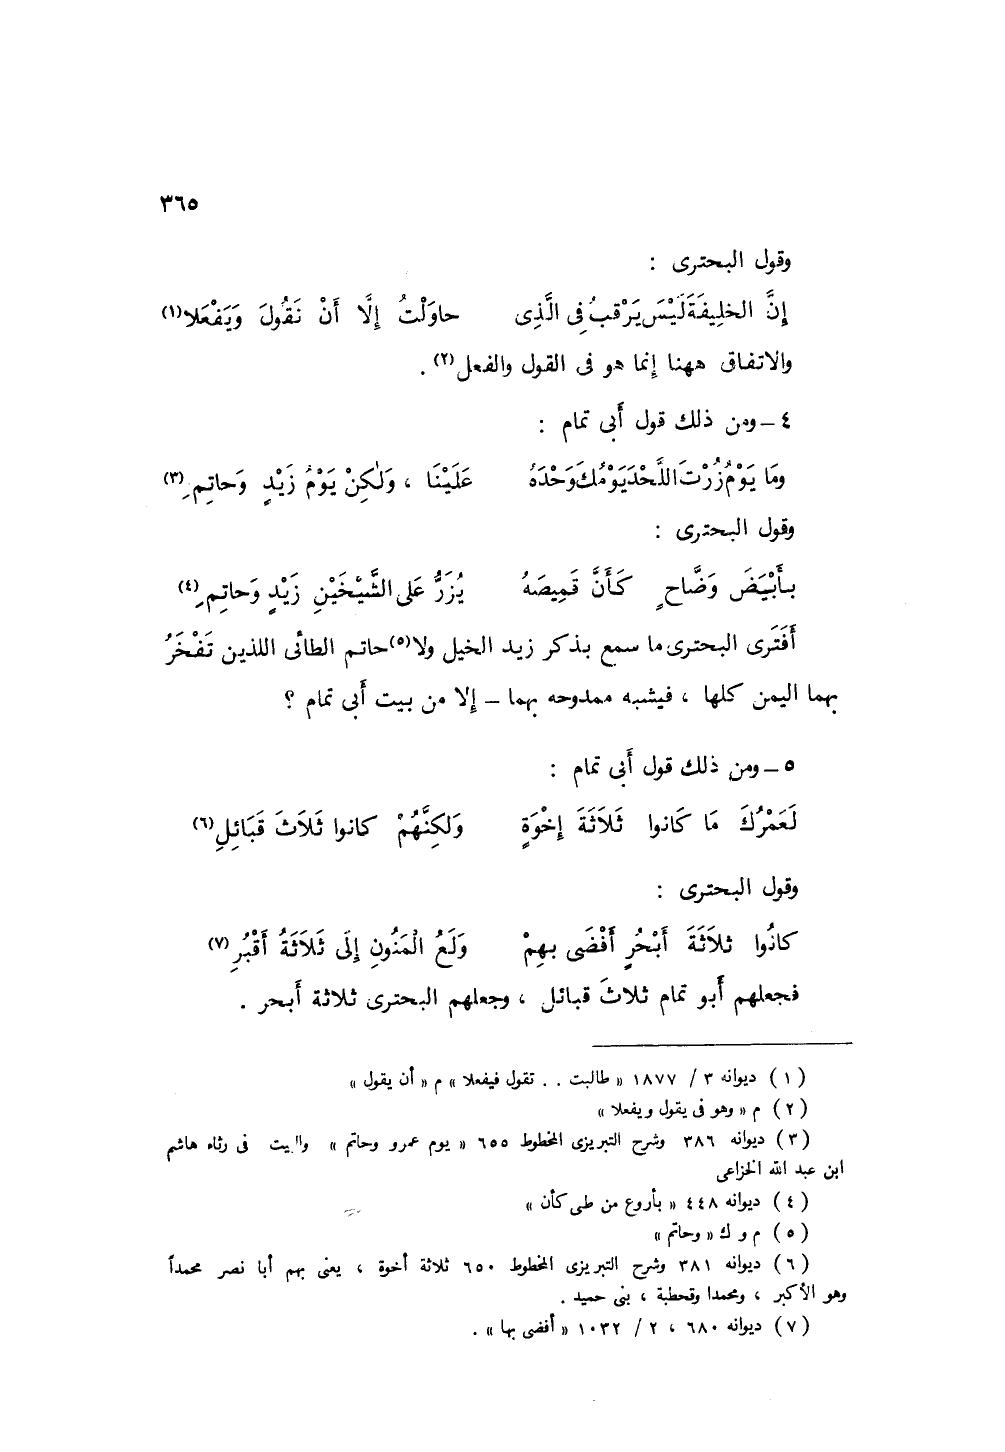 ٣٦٥
وقول البحترى :
إِنَّ الخلِيفَةَ لَيْسَ يَرْقبُ فِى الَّذِى حاوَلْتُ إِلَّا أَنْ نَقُولَ وَيَفْعَلا(١)
والاتفاق ههنا إنما هو فى القول والفعل(٢) .
٤ – ومن ذلك قول أَبى تمام :
ومَا يَوْمُ زُرْتَ اللَّحْدَ يَوْمُكَ وَحْدَهُ عَلَيْنَا ، وَلٰكِنْ يَوْمُ زَيْدٍ وَحاتِمِ(٣)
وقول البحترى :
بأَبْيَضَ وَضَّاحٍ كَأَنَّ قَمِيصَهُ يُزَرُّ عَلى الشَّيْخَيْنِ زَيْدٍ وَحاتِمِ(٤)
أَفَتَرى البحترى ما سمع بذكر زيد الخيل ولا(٥) حاتم الطائى اللذين تَفْخَرُ
بهما اليمن كلها ، فيشبه ممدوحه بهما – إلا من بيت أَبى تمام ؟
٥ – ومن ذلك قول أَبى تمام :
لَعَمْرُكَ مَا كَانوا ثَلاَثَةَ إِخْوَةٍ وَلكِنَّهُمْ كانوا ثَلاَثَ قَبَائِلِ(٦)
وقول البحترى :
كانُوا ثلاَثَةَ أَبْحُرٍ أَفْضَى بهِمْ وَلَعُ الْمَنُونِ إِلَى ثَلاَثَةُ أَقْبُرِ(٧)
فجعلهم أَبو تمام ثلاثَ قبائل ، وجعلهم البحترى ثلاثة أَبحر .
(١) ديوانه ٣ / ١٨٧٧ « طالبت . . تقول فيفعلا » م « أن يقول »
(٢) م « وهو فى يقول ويفعلا »
(٣) ديوانه ٣٨٦ وشرح التبريزى المخطوط ٦٥٥ « يوم عمرو وحاتم » والبيت فى رثاء هاشم
ابن عبد الله الخزاعى
(٤) ديوانه ٤٤٨ « بأروع من طى كأن »
(٥) م و ك « وحاتم »
(٦) ديوانه ٣٨١ وشرح التبريزى المخطوط ٦٥٠ ثلاثة أخوة ، يعنى بهم أبا نصر محمداً
وهو الأكبر ، ومحمدا وقحطبة ، بنى حميد .
(٧) ديوانه ٦٨٠ ، ٢ / ١٠٣٢ « أفضى بها » .